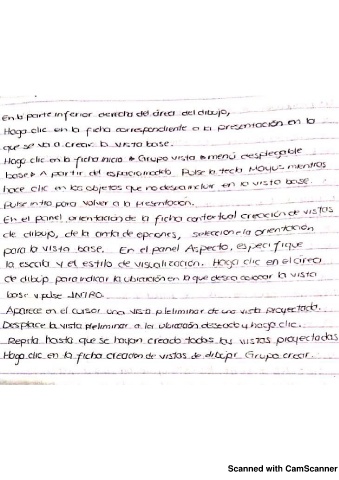 En la parte inferior derecha del área del dibujo,
Haga clic en la ficha correspondiente a la presentación en la
que se va a crear la vista base.
Haga clic en la ficha inicio → Grupo vista → menú desplegable
base → A partir del espacio modelo Pulse la tecla Mayus mientras
hace clic en los objetos que no desea incluir en la vista base.
Pulse intro para volver a la presentacion.
En el panel orientación de la ficha contextual creación de vistas
de dibujo, de la cinta de opciones, seleccione la orientación
para la vista base. En el panel Aspecto, especifique
la escala y el estilo de visualización. Haga clic en el area
de dibujo para indicar la ubicación en la que desea colocar la vista
base y pulse INTRO.
Aparece en el cursor una vista preliminar de una vista proyectada.
Desplace la vista preliminar a la ubicación deseada y haga clic.
Repita hasta que se hayan creado todas las vistas proyectadas
Haga clic en la ficha creacion de vistas de dibujo Grupo crear.
Scanned with CamScanner